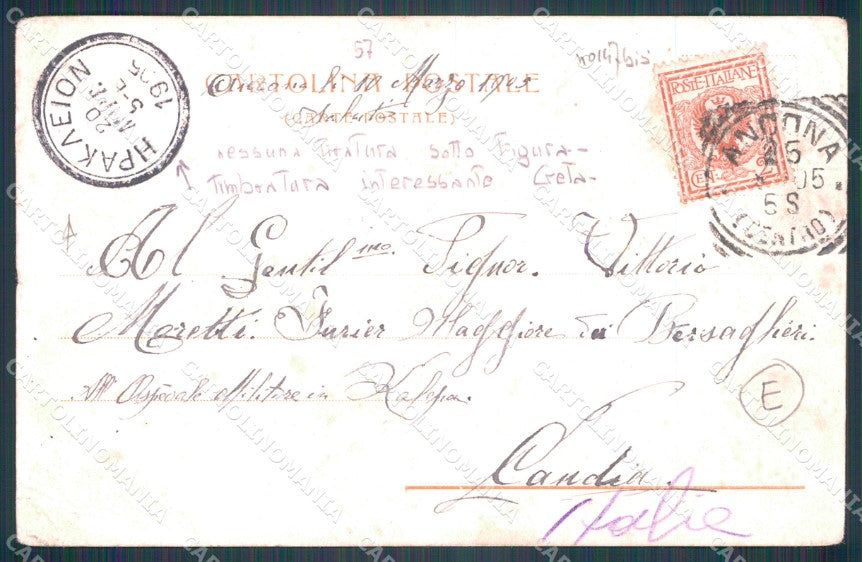 57
no 1147 bis
CARTOLINA POSTALE
Ancona li 11 Marzo 1905
(CARTE POSTALE)
Saluti
nessuna firatura sotto Figura-
Timbratura interessante Creta-
ΗΡΑΚΛΕΙΟΝ
20
5-E
1905
POSTE ITALIANE
CENT. 2
ANCONA
05
5 S
(CENTRO)
Al Gentil mo. Signor. Vittorio
Moretti. Furier Maggiore dei Bersaglieri.
Ospedale Militare in Kalepa.
E
Candia
Italie
CARTOLINOMANIA